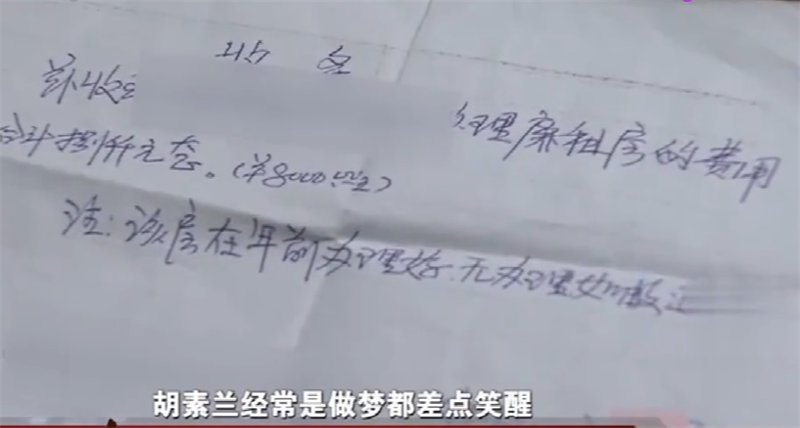 收条
兹收到 办理廉租房的费用
合计捌仟元套。(￥8000.00元)
注:该房在年前办理好.无办理如数汇
胡素兰经常是做梦都差点笑醒